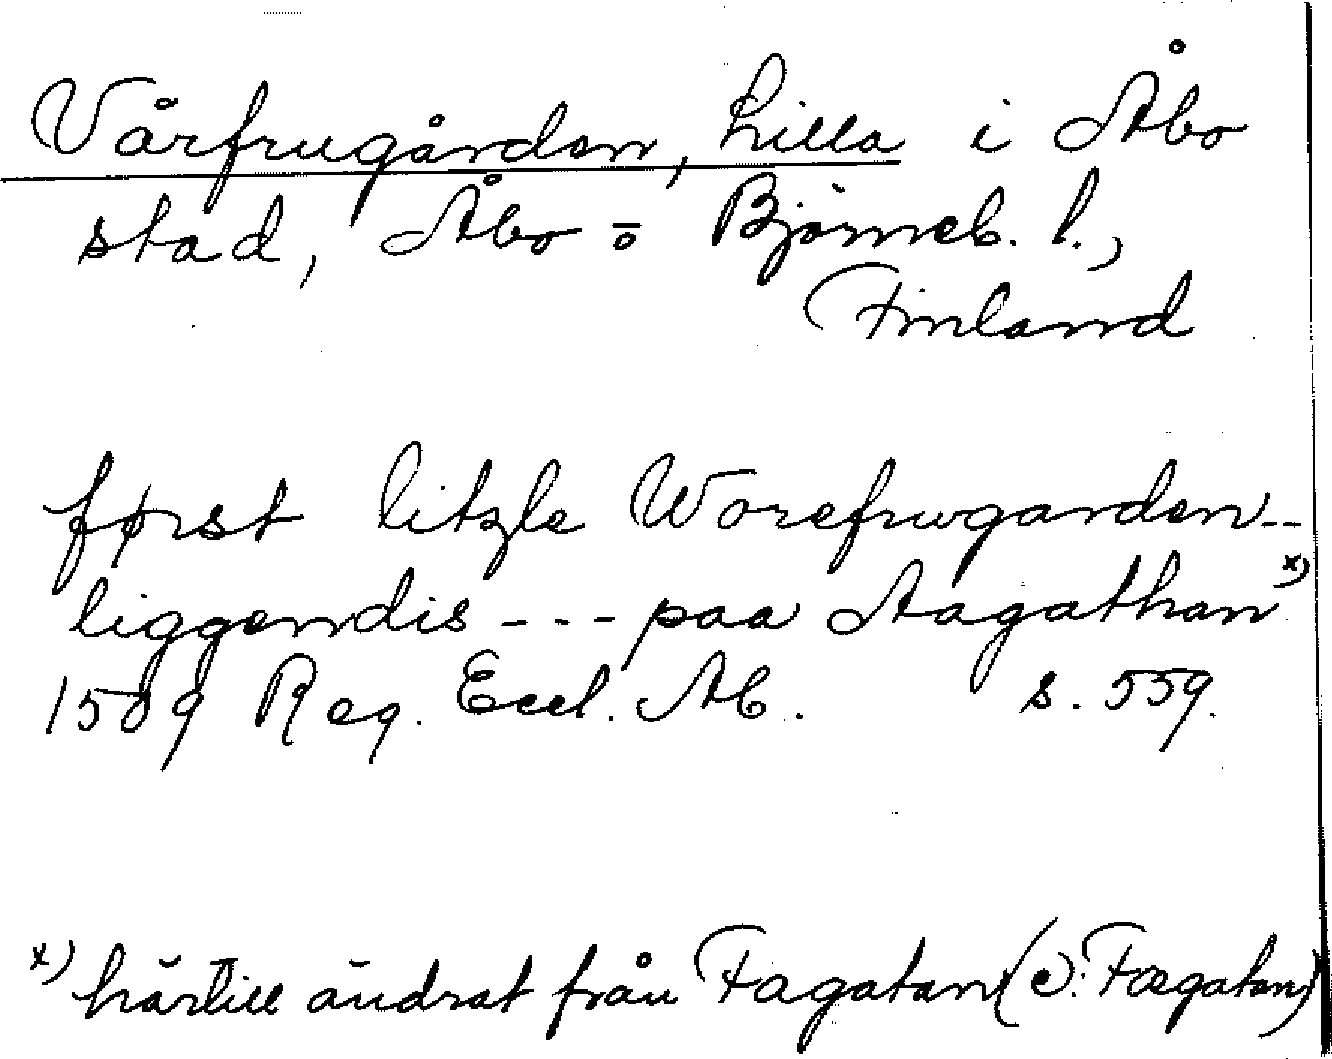 Vårfrugården, Lilla i Åbo
stad, Åbo o Björneb. l.,
Finland
først litzle Worefrwgarden--
liggendis --- paa Aagathan x)
1509 Reg. Eccl. Ab. s. 559.
x) härtill ändrat från Fagatan (e). Fægatan)